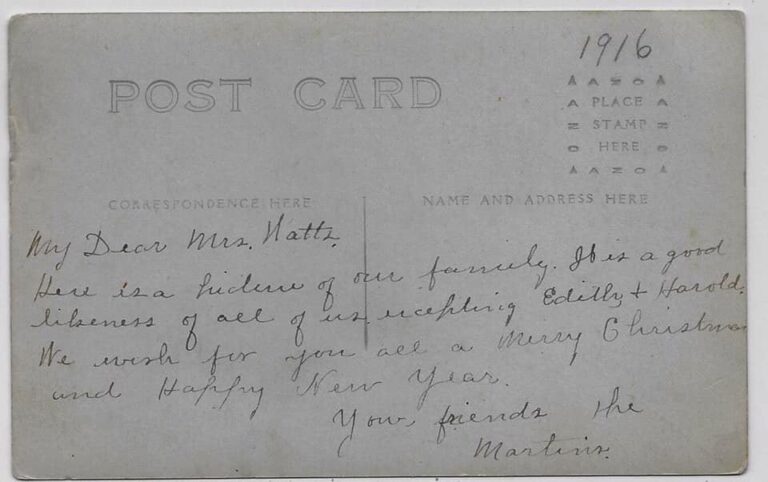 1916
POST CARD
A A Z O A
A PLACE A
Z STAMP Z
O HERE O
A A Z O A
CORRESPONDENCE HERE
NAME AND ADDRESS HERE
My Dear Mrs. Watts.
Here is a picture of our family. It is a good
likeness of all of us excepting Edith & Harold.
We wish for you all a Merry Christmas
and Happy New Year.
Your friends the
Martins.